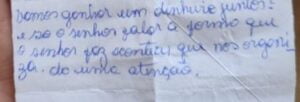 vamos ganhar um dinheiro juntos:
e só o senhor falar a forma que
o senhor faz acontecer que nos organi
za. do uma atenção.